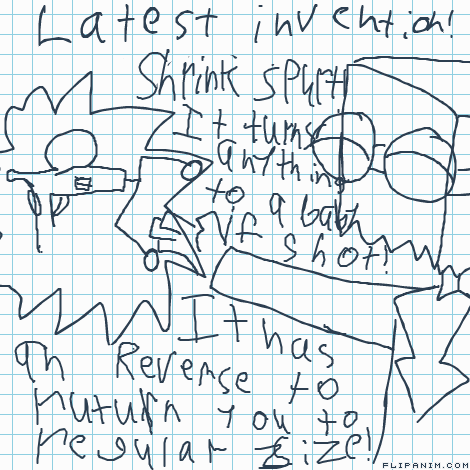 Latest invention!
Shrink spurt
It turns
anything
to a baby
if shot!
It has
an Reverse to
Ruturn you to
Regular size!
FLIPANIM.COM